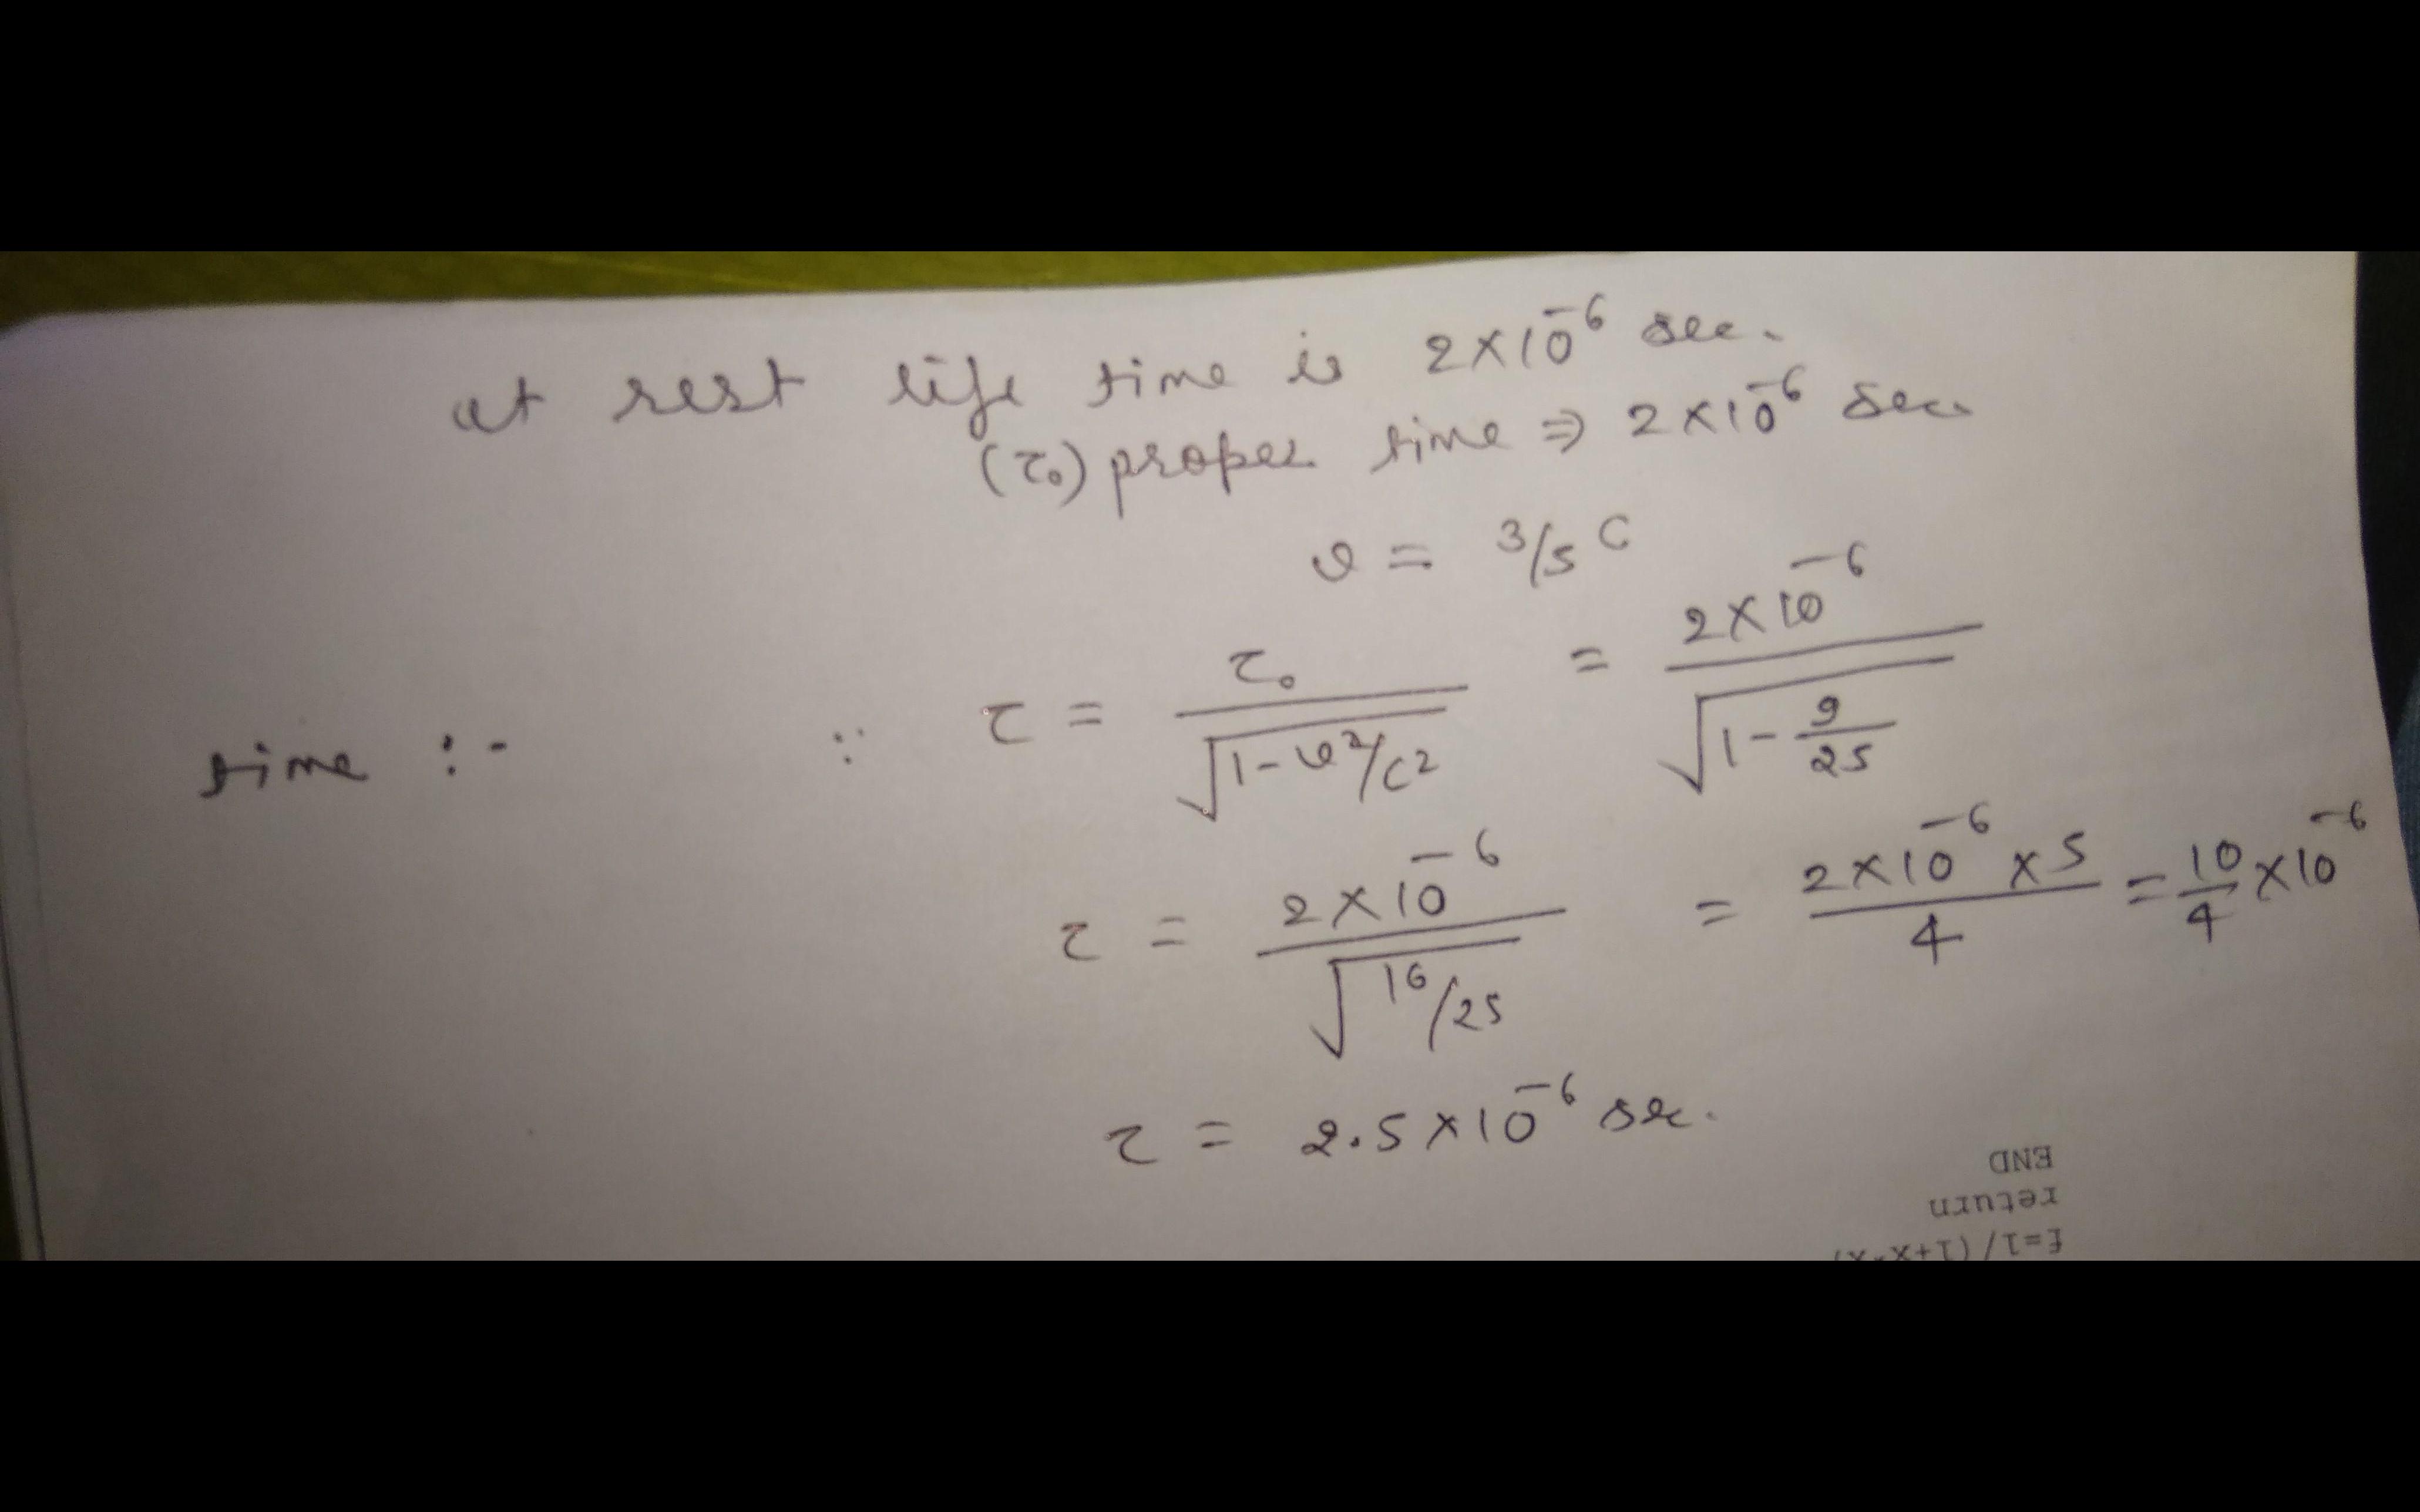 at rest life time is 2×10⁻⁶ sec.
(τ₀) proper time ⇒ 2×10⁻⁶ sec
v = 3/5 C
time :- ∵ τ = τ₀ / √(1-v²/c²) = 2×10⁻⁶ / √(1-9/25)
τ = 2×10⁻⁶ / √(16/25) = 2×10⁻⁶×5 / 4 = 10/4 ×10⁻⁶
τ = 2.5×10⁻⁶ sec.
END
return
f=1/(1+x*x)